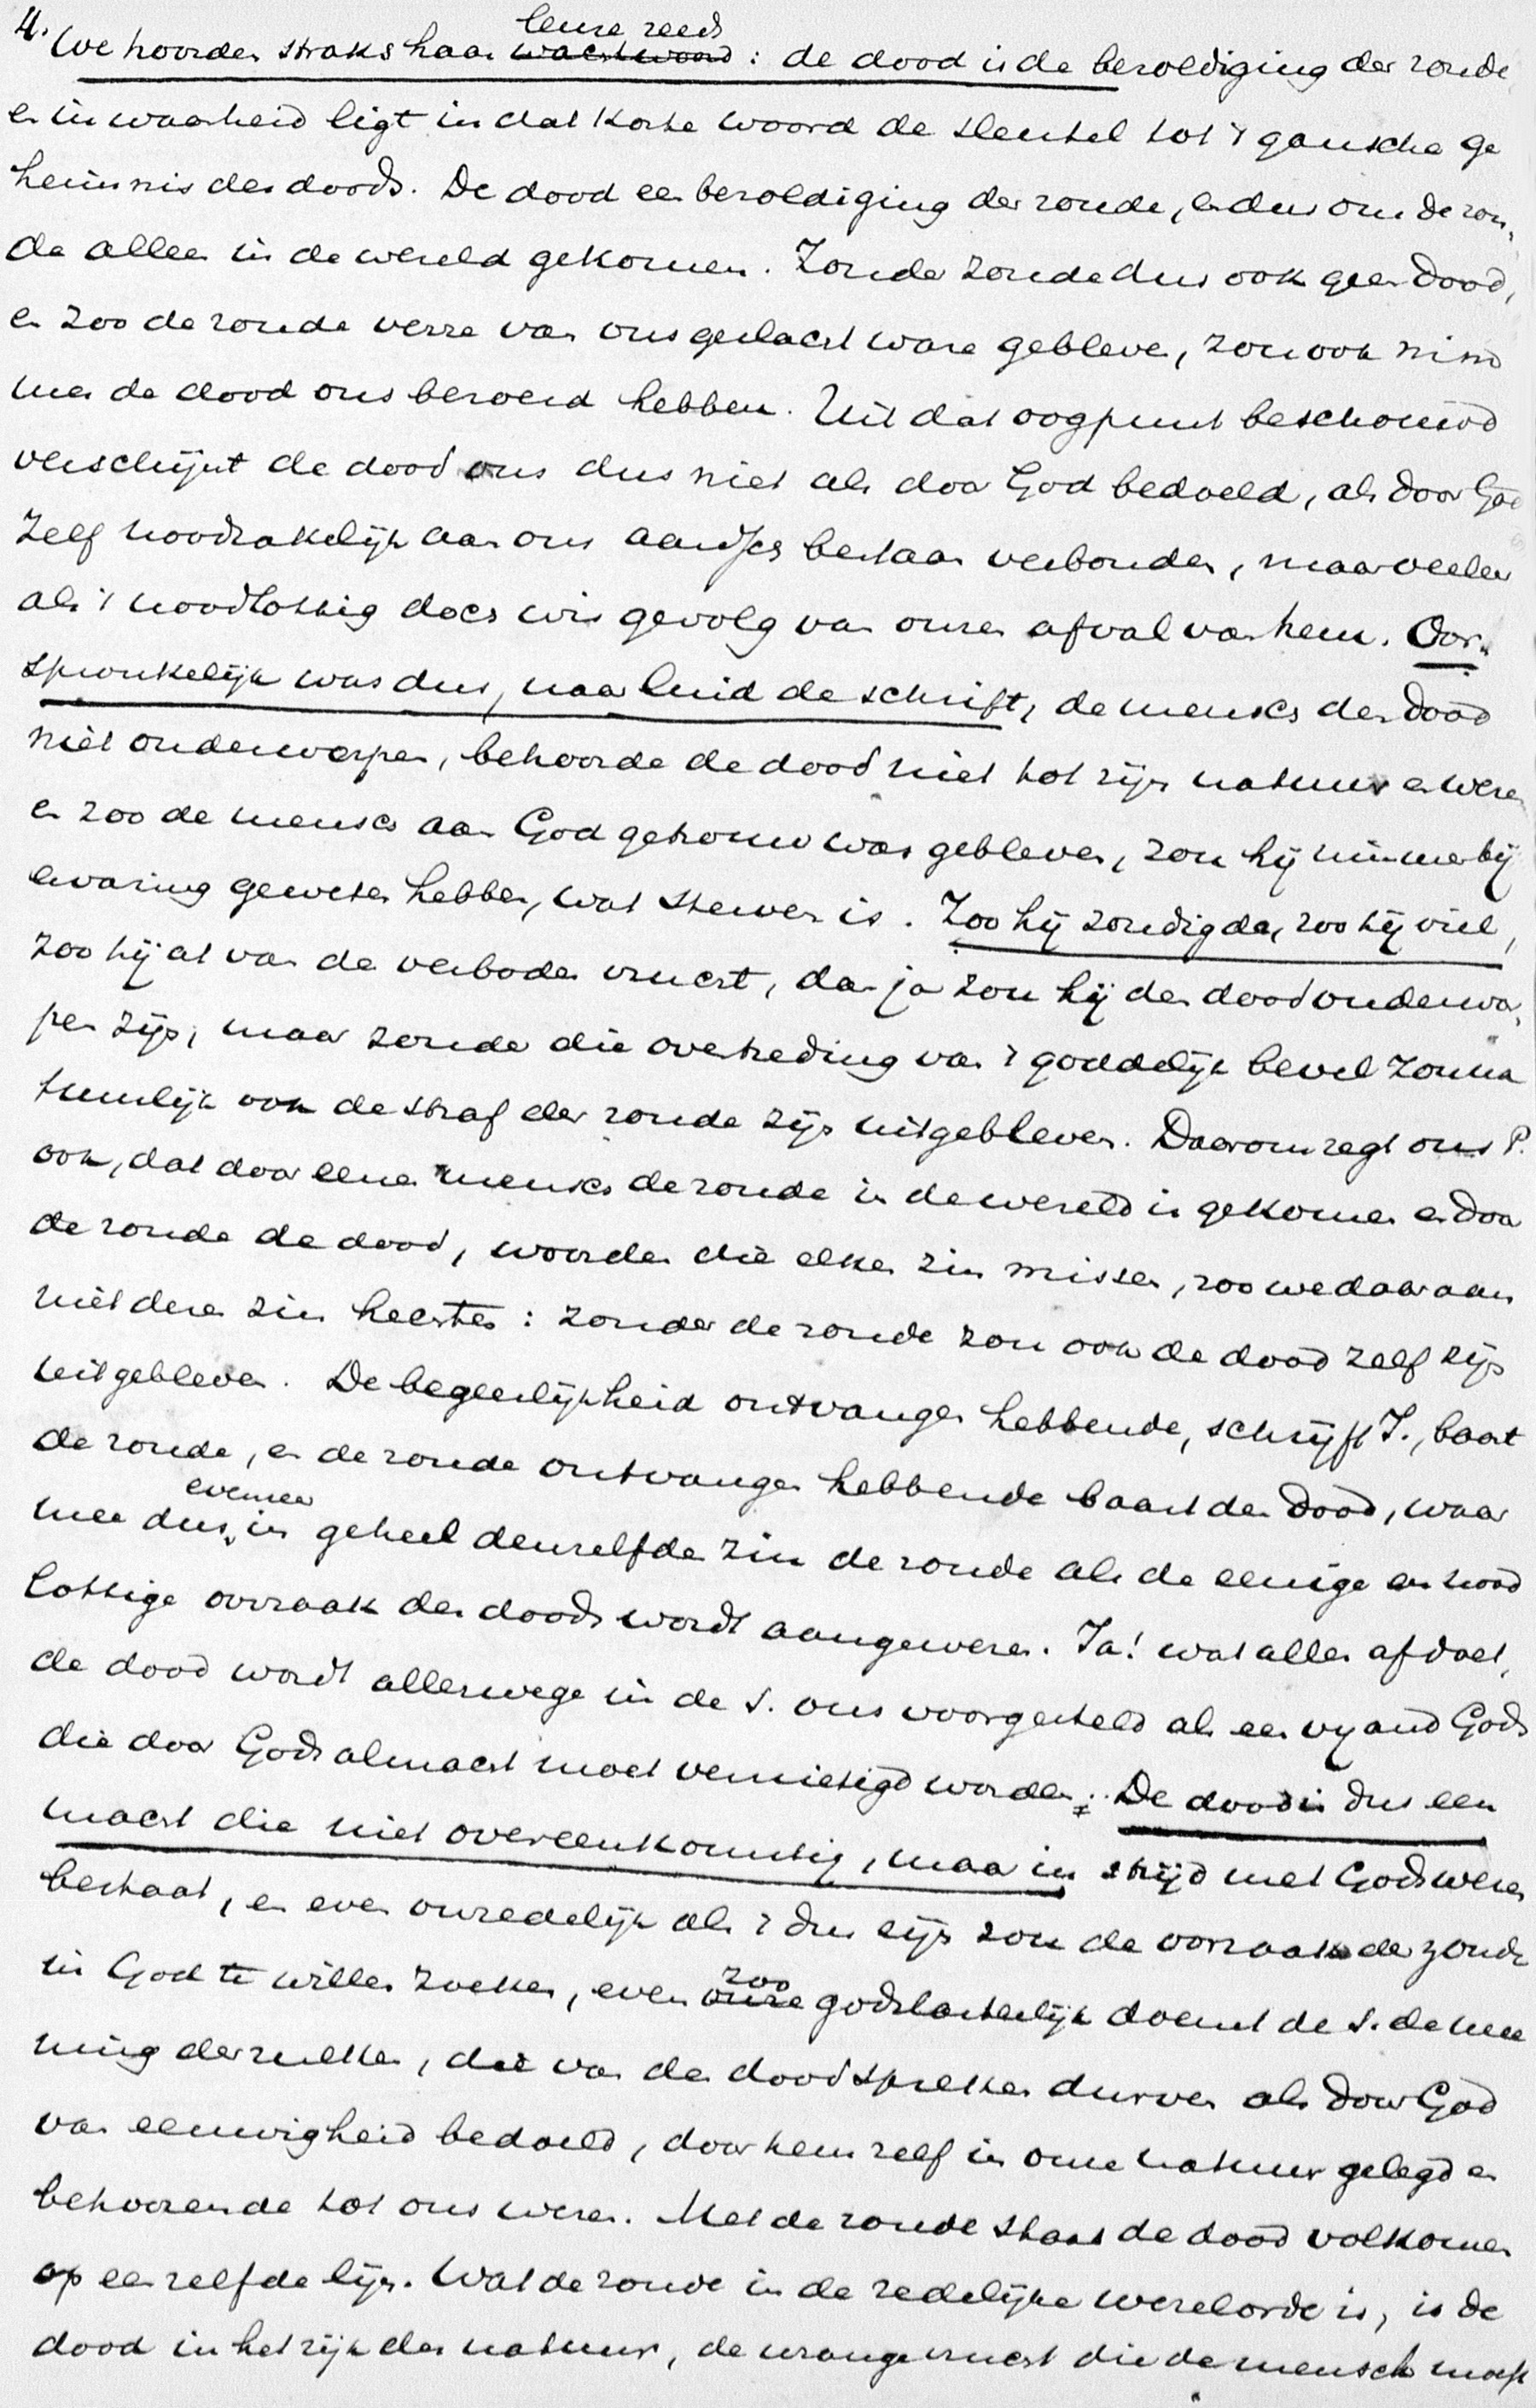 4. We hoorden straks haar leuze reeds : de dood is de bezoldiging der zonde
en in waarheid ligt in dat korte woord de sleutel tot 't gansche ge
heimnis des doods. De dood een bezoldiging der zonde, en dus om de zon,
de alleen in de wereld gekomen. Zonder zonde dus ook geen dood,
en zoo de zonde verre van ons geslacht ware gebleven, zou ook nim
mer de dood ons beroerd hebben. Uit dat oogpunt beschouwd
verschijnt de dood ons dus niet als door God bedoeld, als door God
zelf noodzakelijk aan ons aardsch bestaan verbonden, maar veeleer
als 't noodlottig doch wis gevolg van onzen afval van hem. Oor„
spronkelijk was dus, naar luid de schrift, de mensch den dood
niet onderworpen, behoorde de dood niet tot zijn natuur en wezen
en zoo de mensch aan God getrouw was gebleven, zou hij nimmer bij
ervaring geweten hebben, wat sterven is. Zoo hij zondigde, zoo hij viel,
zoo hij at van de verboden vrucht, dan ja zou hij den dood onderwor,
pen zijn, maar zonder die overtreding van 't goddelijk bevel zou na
tuurlijk ook de straf der zonde zijn uitgebleven. Daarom zegt ons P.
ook, dat door eenen mensch de zonde in de wereld is gekomen en door
de zonde de dood, woorden die elken zin missen, zoo we daaraan
niet dezen zin hechten : zonder de zonde zou ook de dood zelf zijn
uitgebleven. De begeerlijkheid ontvangen hebbende, schrijft J., baart
de zonde, en de zonde ontvangen hebbende baart den dood, waar
mee dus evenzeer in geheel denzelfden zin de zonde als de eenige en nood
lottige oorzaak des doods wordt aangewezen. Ja! wat alles afdoet,
de dood wordt allerwege in de S. ons voorgesteld als een vyand Gods
die door Gods almacht moet vernietigd worden. De dood is dus een
macht die niet overeenkomstig, maar in strijd met Gods wezen
bestaat, en even onredelijk als 't dus zijn zou de oorzaak der zonde
in God te willen zoeken, even zoo godslasterlijk doemt de S. de mee
ning derzulken, die van den dood spreken durven als door God
van eeuwigheid bedoeld, door hem zelf in onze natuur gelegd en
behoorende tot ons wezen. Met de zonde staat de dood volkomen
op een zelfde lijn. Wat de zonde in de redelijke wereldorde is, is de
dood in het rijk der natuur, de wrange vrucht die de mensch moest